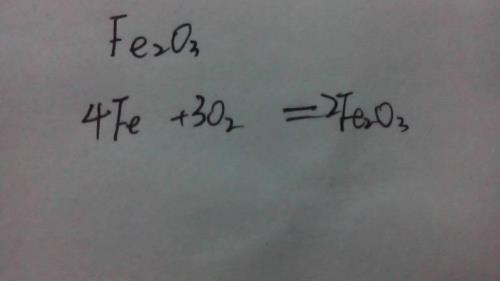 Fe₂O₃
4Fe +3O₂ =2Fe₂O₃